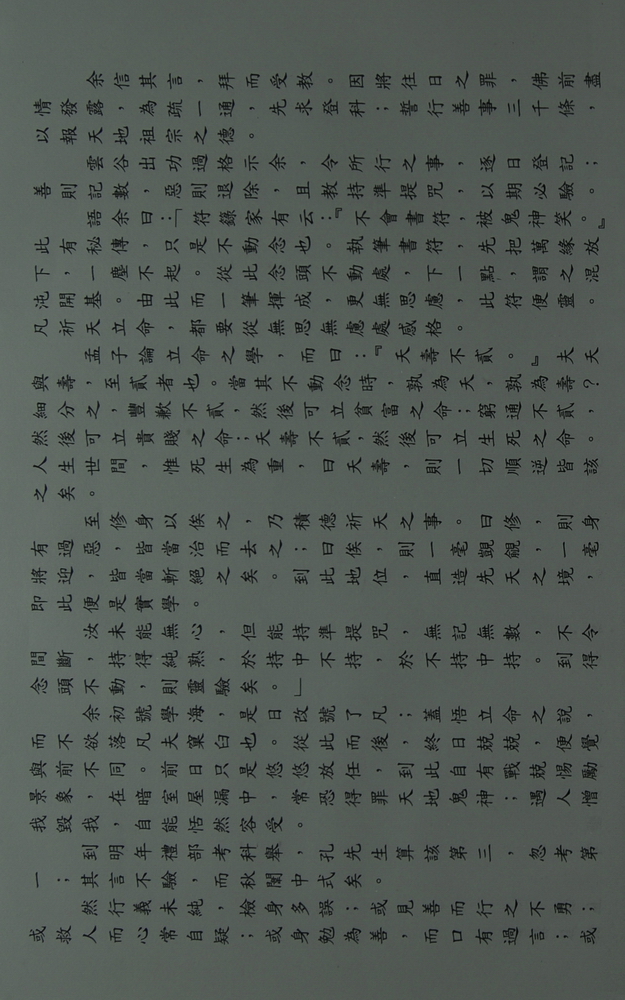 余信其言，拜而受教。因將往日之罪，佛前盡
情發露，為疏一通，先求登科；誓行善事三千條，
以報天地祖宗之德。
雲谷出功過格示余，令所行之事，逐日登記；
善則記數，惡則退除，且教持準提咒，以期必驗。
語余曰：「符錄家有云：『不會書符，被鬼神笑。』
此有秘傳，只是不動念也。執筆書符，先把萬緣放
下，一塵不起。從此念頭不動處，下一點，謂之混
沌開基。由此而一筆揮成，更無思慮，此符便靈。
凡祈天立命，都要從無思無慮處感格。
孟子論立命之學，而曰：『夭壽不貳。』夫夭
與壽，至貳者也。當其不動念時，孰為夭，孰為壽？
細分之，豐歉不貳，然後可立貧富之命；窮通不貳，
然後可立貴賤之命；夭壽不貳，然後可立生死之命。
人生世間，惟死生為重，曰夭壽，則一切順逆皆該
之矣。
至修身以俟之，乃積德祈天之事。曰修，則身
有過惡，皆當治而去之；曰俟，則一毫覬覦，一毫
將迎，皆當斬絕之矣。到此地位，直造先天之境，
即此便是實學。
汝未能無心，但能持準提咒，無記無數，不令
間斷，持得純熟，於持中不持，於不持中持。到得
念頭不動，則靈驗矣。」
余初號學海，是日改號了凡；蓋悟立命之說，
而不欲落凡夫窠臼也。從此而後，終日兢兢，便覺
與前不同。前日只是悠悠放任，到此自有戰兢惕勵
景象，在暗室屋漏中，常恐得罪天地鬼神；遇人憎
我毀我，自能恬然容受。
到明年禮部考科舉，孔先生算該第三，忽考第
一；其言不驗，而秋闈中式矣。
然行義未純，檢身多誤；或見善而行之不勇；
或救人而心常自疑；或身勉為善，而口有過言；或